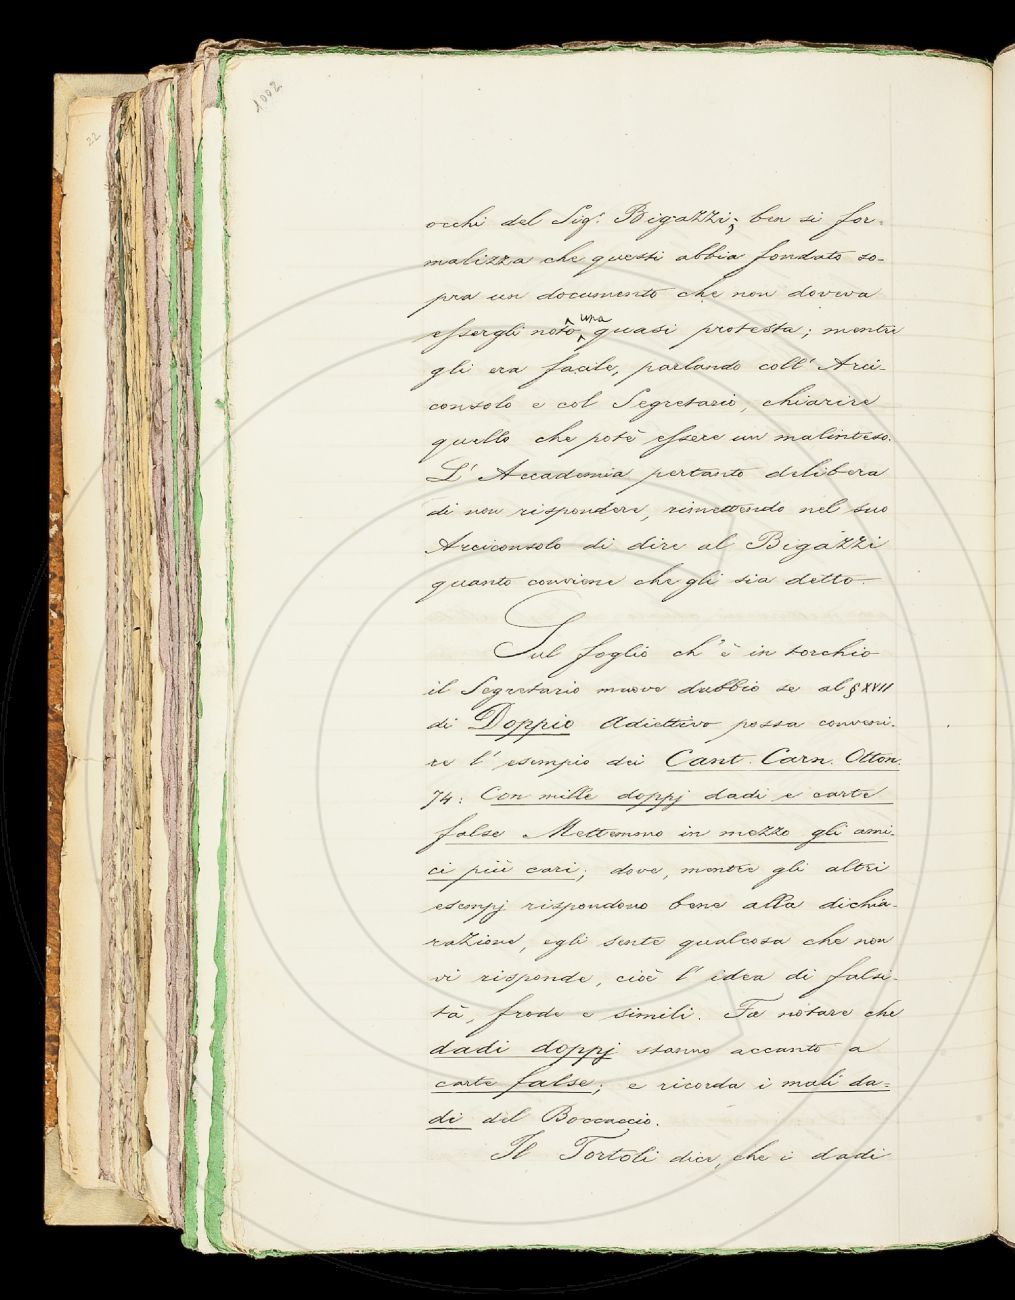 1002
22
occhi del Sig.r Bigazzi; ben si for-
malizza che questi abbia fondato so-
pra un documento che non doveva
essergli noto, una quasi protesta; mentre
gli era facile, parlando coll' Arci-
consolo e col Segretario, chiarire
quello che potè essere un malinteso.
L' Accademia pertanto delibera
di non rispondere, rimettendo nel suo
Arciconsolo di dire al Bigazzi
quanto conviene che gli sia detto.
Sul foglio ch' è in torchio
il Segretario muove dubbio se al § XVII
di Doppio Adiettivo possa conveni-
re l' esempio dei Cant. Carn. Otton.
74: Con mille doppj dadi e carte
false Mettemmo in mezzo gli ami-
ci più cari; dove, mentre gli altri
esempj rispondono bene alla dichia-
razione, egli sente qualcosa che non
vi risponde, cioè l' idea di falsi-
tà, frode e simili. Fa notare che
dadi doppj stanno accanto a
carte false; e ricorda i mali da-
di del Boccaccio.
Il Tortoli dice, che i dadi